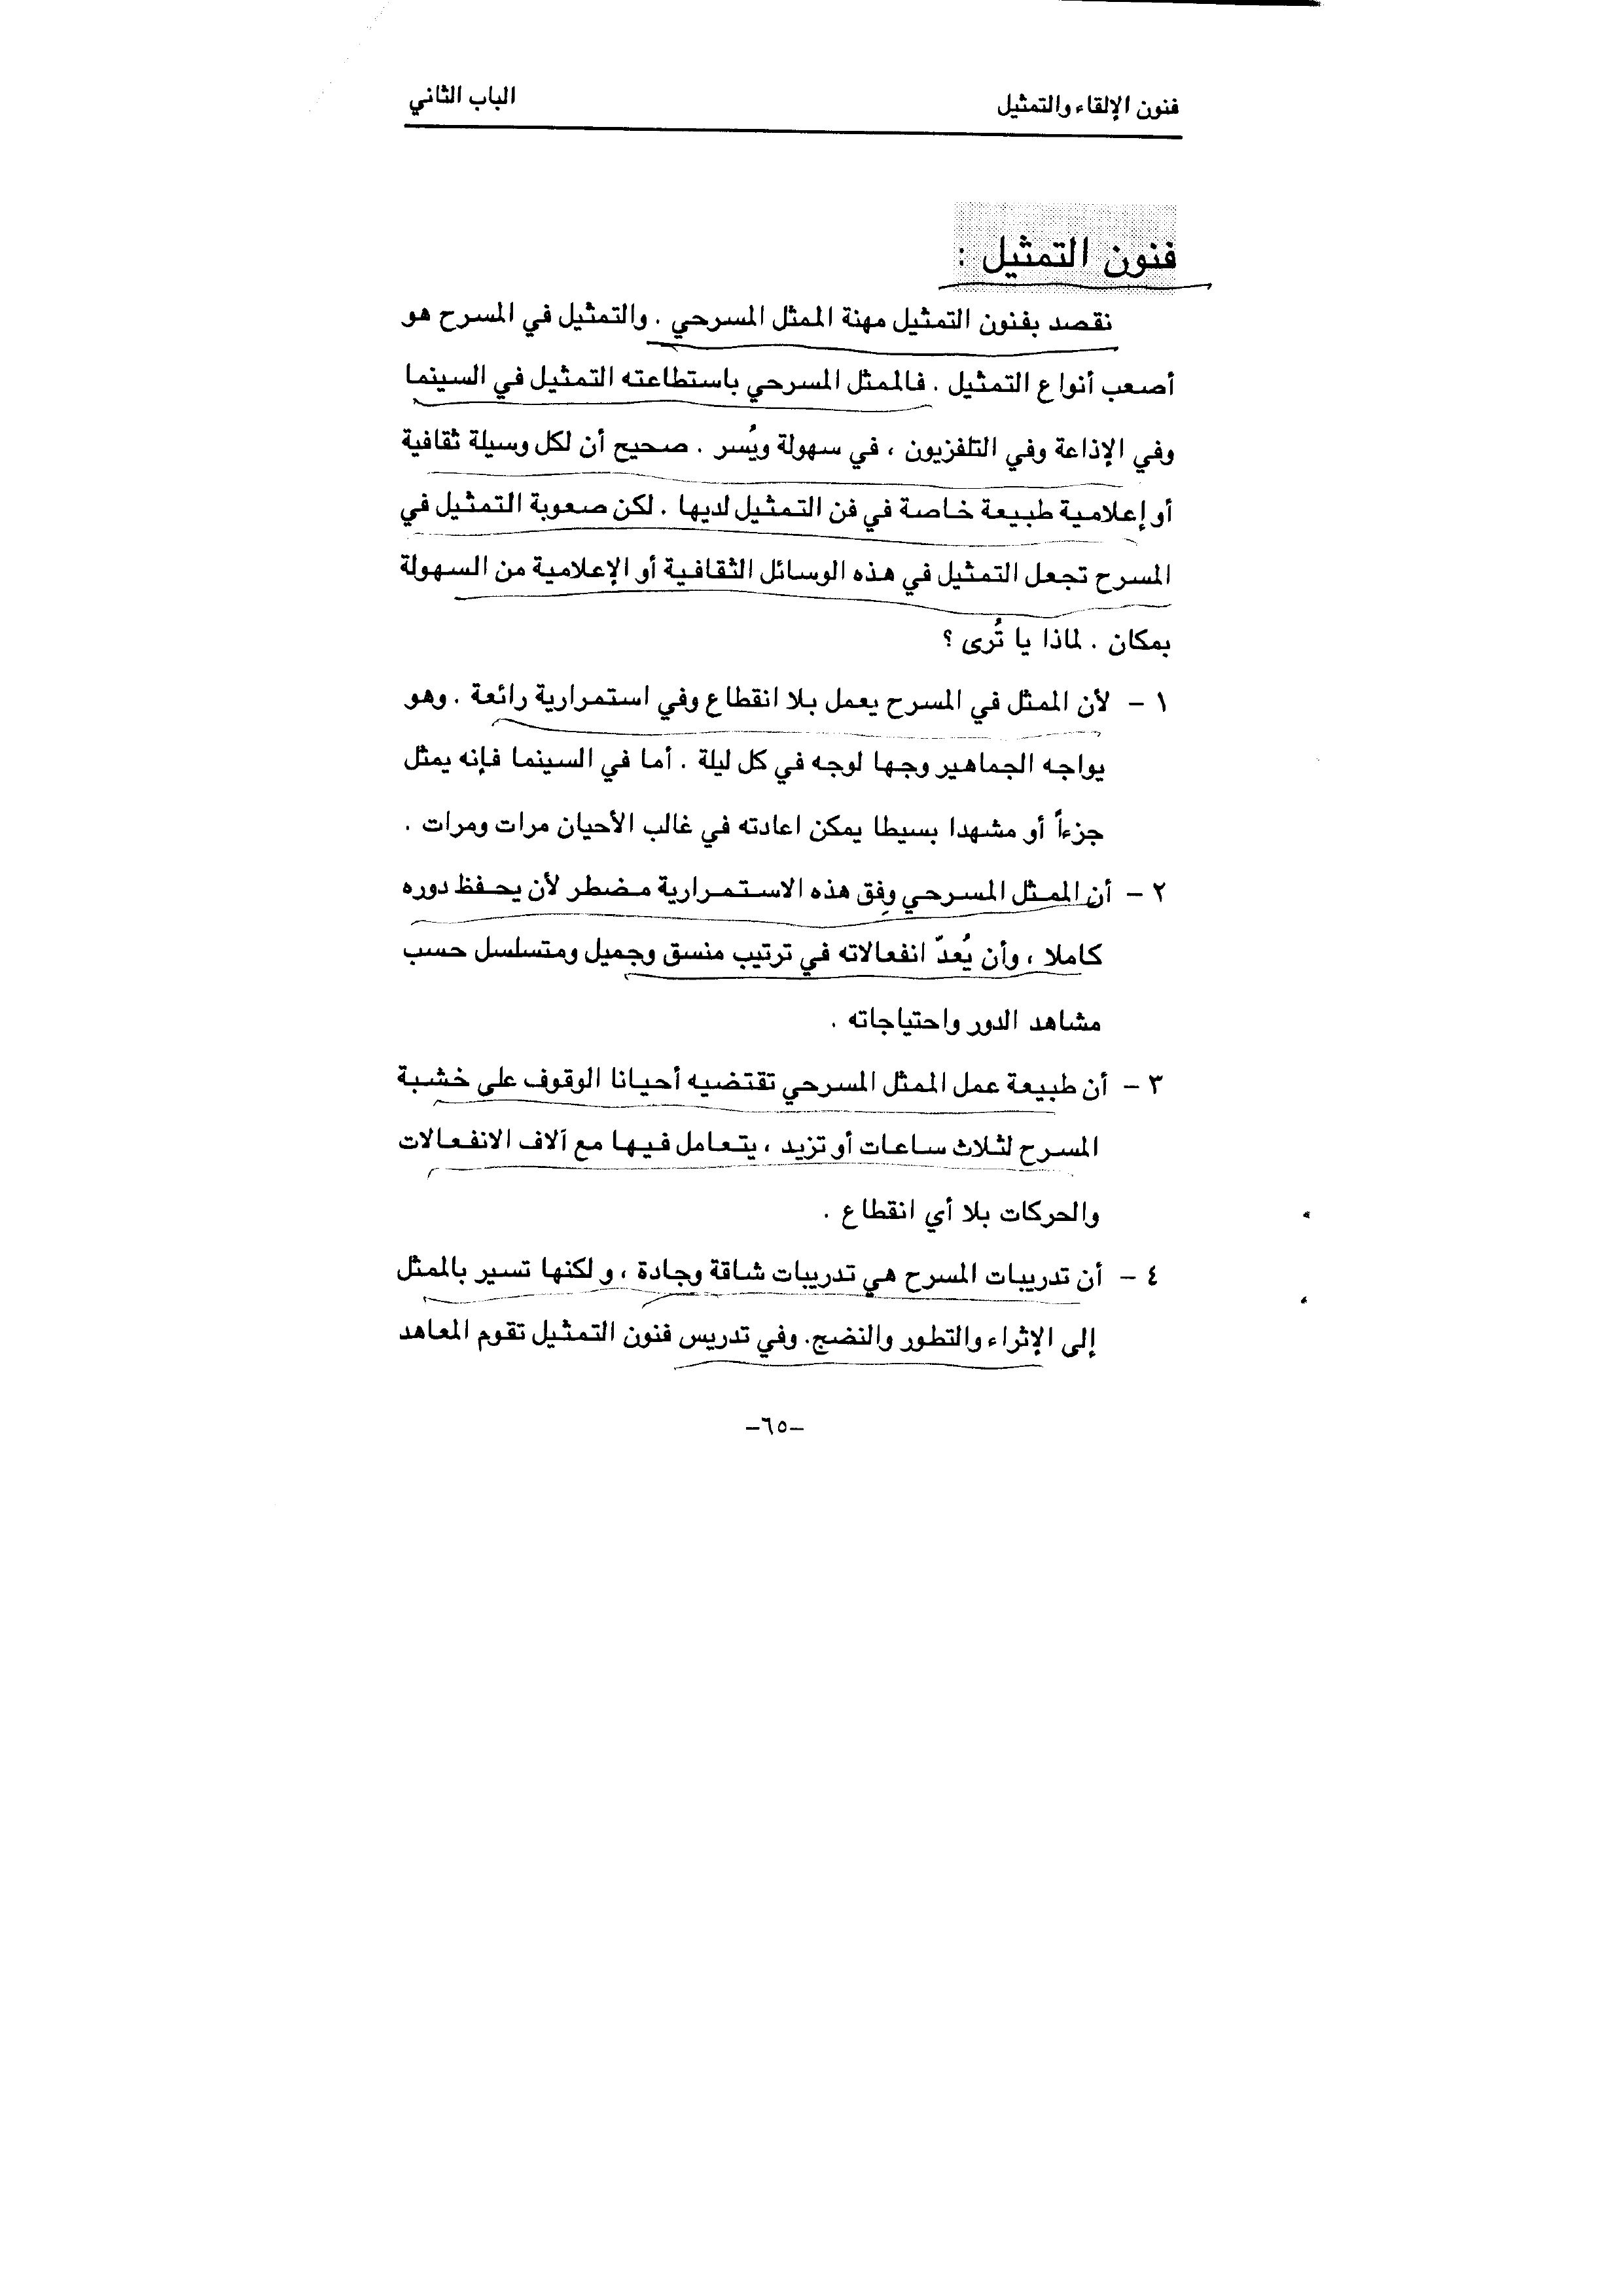 فنون الإلقاء والتمثيل الباب الثاني
فنون التمثيل :
نقصد بفنون التمثيل مهنة الممثل المسرحي . والتمثيل في المسرح هو
أصعب أنواع التمثيل . فالممثل المسرحي باستطاعته التمثيل في السينما
وفي الإذاعة وفي التلفزيون ، في سهولة ويُسر . صحيح أن لكل وسيلة ثقافية
أو إعلامية طبيعة خاصة في فن التمثيل لديها . لكن صعوبة التمثيل في
المسرح تجعل التمثيل في هذه الوسائل الثقافية أو الإعلامية من السهولة
بمكان . لماذا يا تُرى ؟
١ - لأن الممثل في المسرح يعمل بلا انقطاع وفي استمرارية رائعة . وهو
يواجه الجماهير وجها لوجه في كل ليلة . أما في السينما فإنه يمثل
جزءاً أو مشهدا بسيطا يمكن اعادته في غالب الأحيان مرات ومرات .
٢ - أن الممثل المسرحي وفق هذه الاستمرارية مضطر لأن يحفظ دوره
كاملا ، وأن يُعدّ انفعالاته في ترتيب منسق وجميل ومتسلسل حسب
مشاهد الدور واحتياجاته .
٣ - أن طبيعة عمل الممثل المسرحي تقتضيه أحيانا الوقوف على خشبة
المسرح لثلاث ساعات أو تزيد ، يتعامل فيها مع آلاف الانفعالات
والحركات بلا أي انقطاع .
٤ - أن تدريبات المسرح هي تدريبات شاقة وجادة ، و لكنها تسير بالممثل
إلى الإثراء والتطور والنضج. وفي تدريس فنون التمثيل تقوم المعاهد
-٦٥-